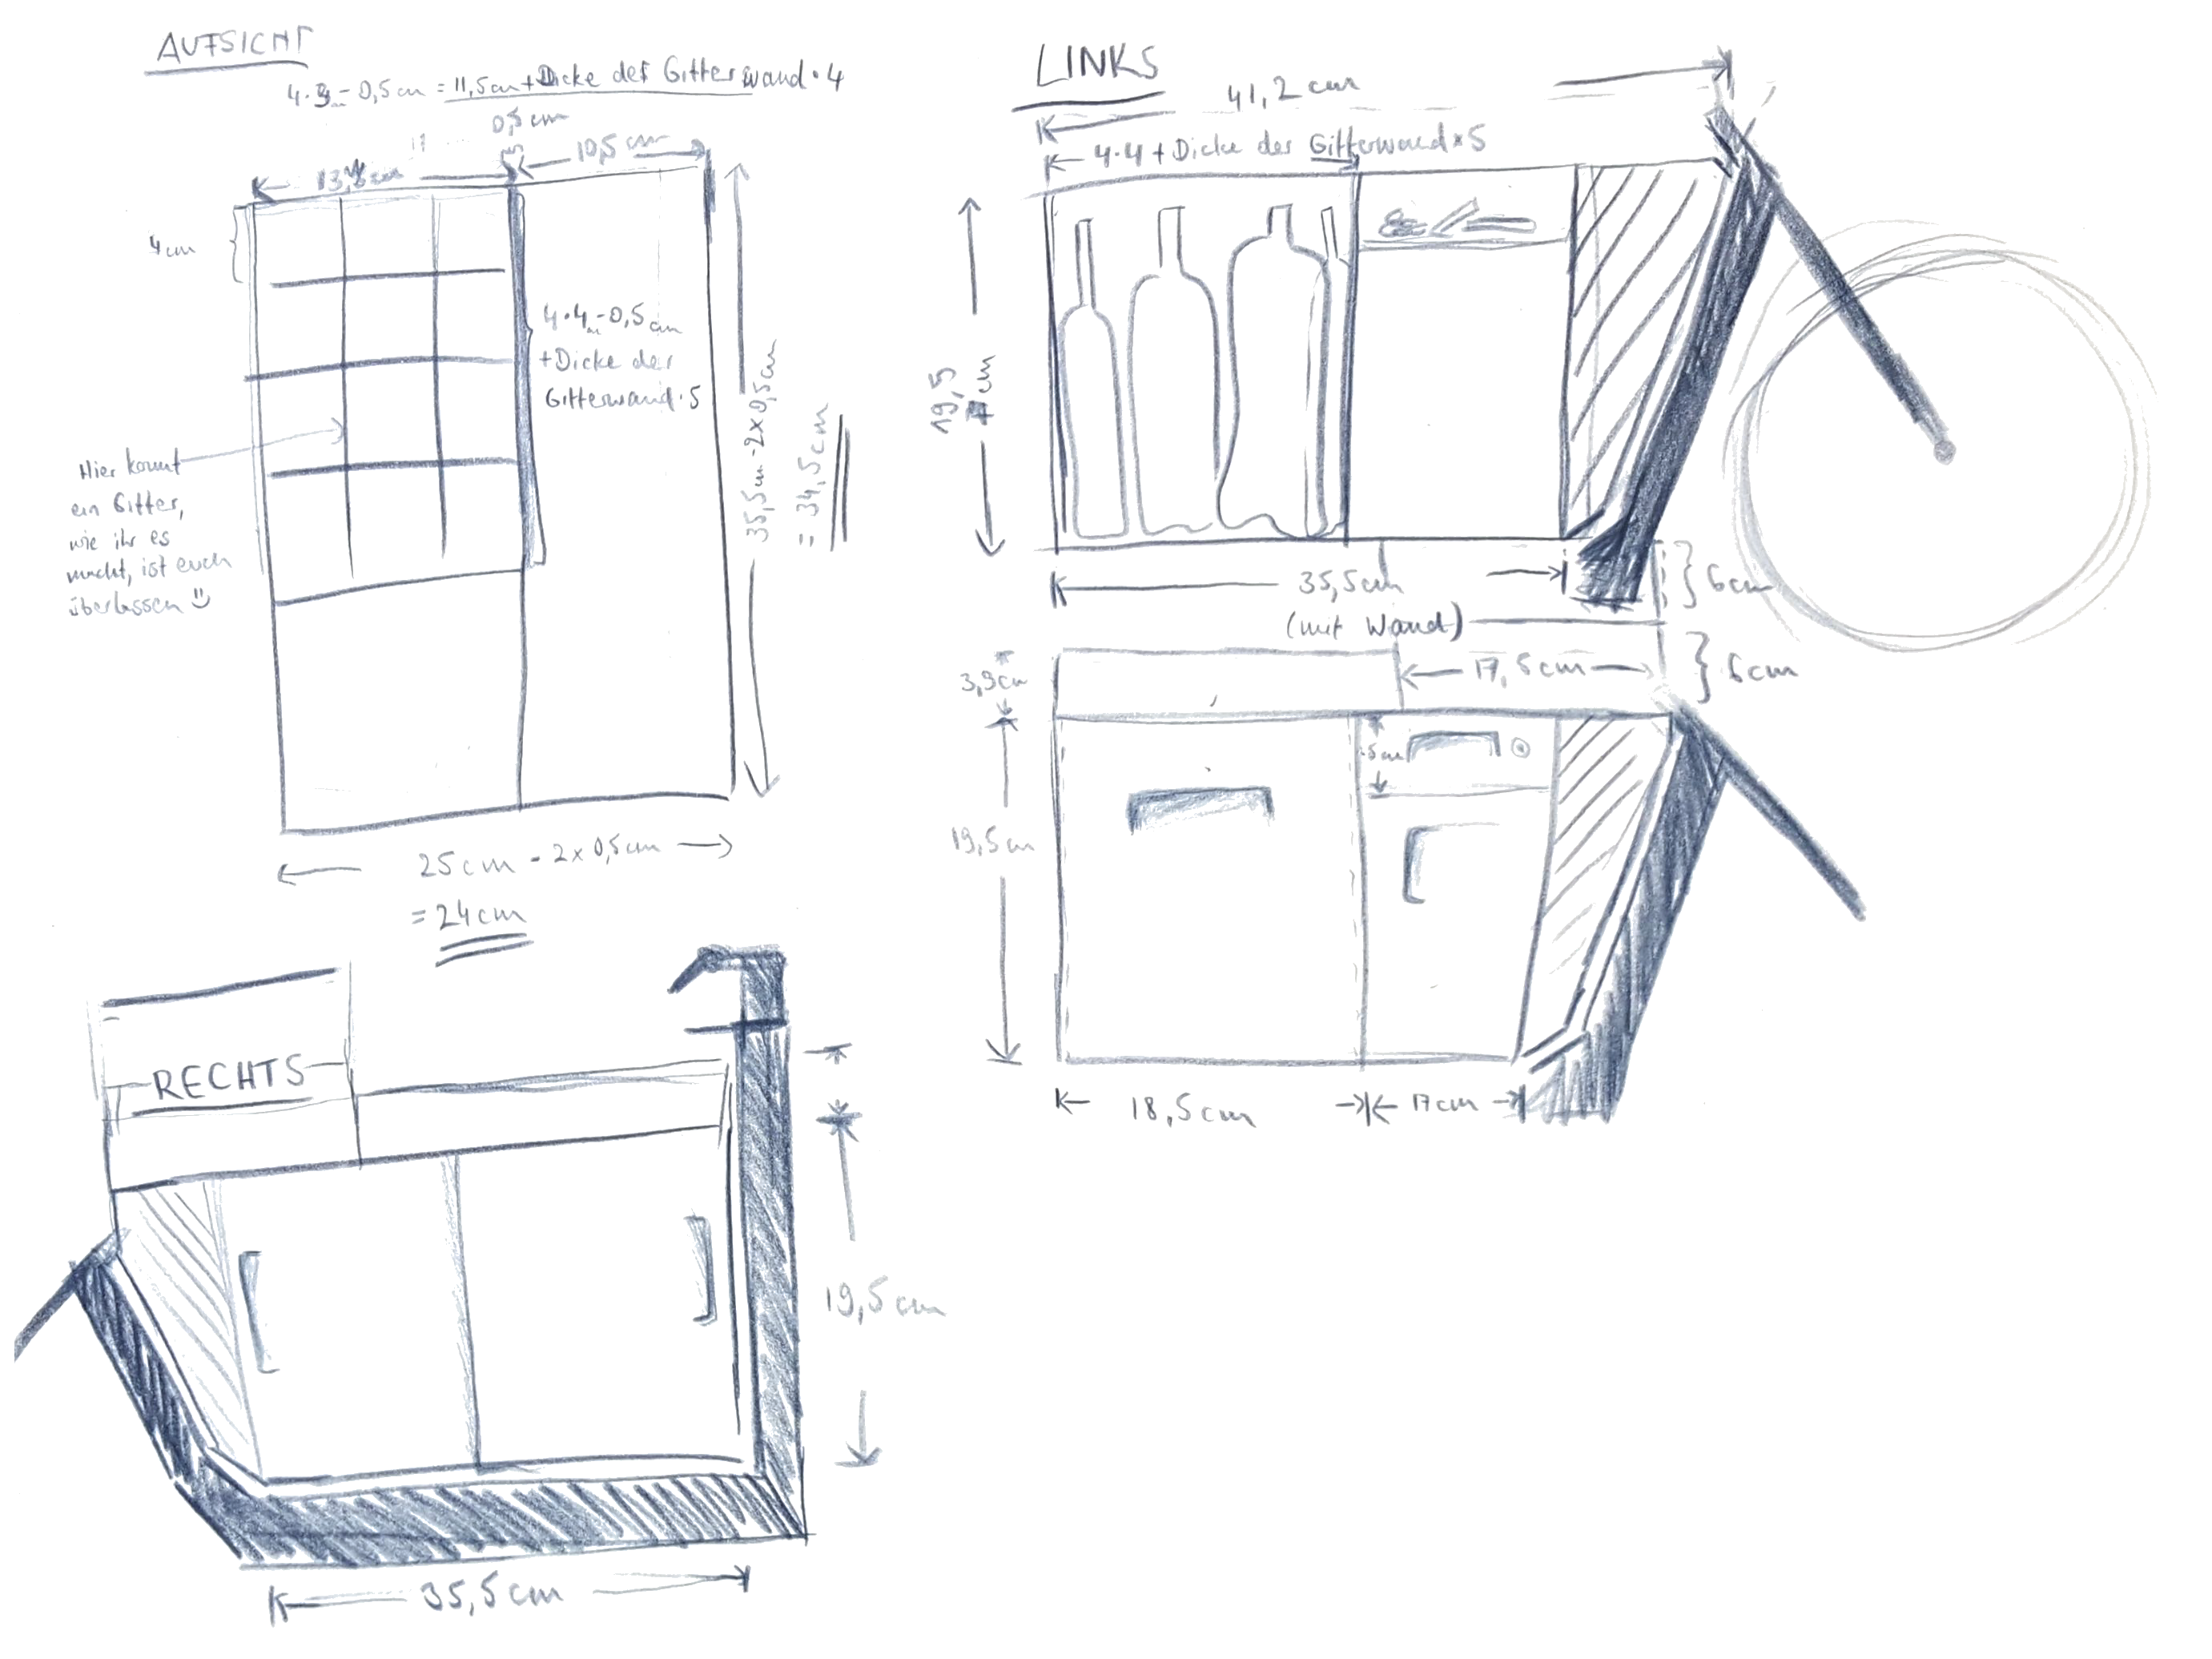 AUFSICHT
4·3cm-0,5cm = 11,5cm + Dicke der Gitterwand·4
0,5cm
10,5cm
4cm
4·4cm-0,5cm
+Dicke der
Gitterwand·5
35,5cm-2x0,5cm
= 34,5cm
Hier kommt
ein Gitter,
wie ihr es
macht, ist euch
überlassen
25cm - 2x0,5cm
= 24cm
LINKS
41,2cm
4·4 + Dicke der Gitterwand x 5
19,5
cm
35,5cm
(mit Wand)
6cm
6cm
3,9cm
17,5cm
5cm
19,5cm
18,5cm
17cm
RECHTS
19,5cm
35,5cm